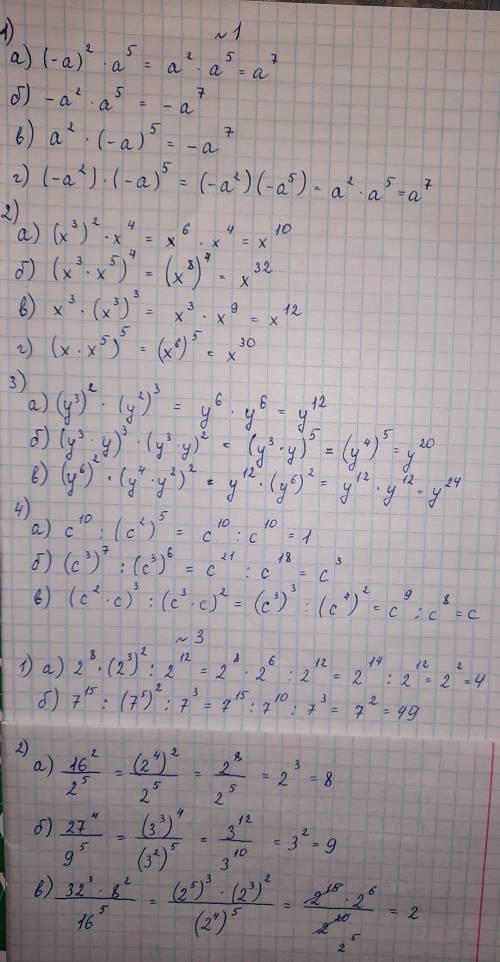 №1
1)
а) (-a)² · a⁵ = a² · a⁵ = a⁷
б) -a² · a⁵ = -a⁷
в) a² · (-a)⁵ = -a⁷
г) (-a²) · (-a)⁵ = (-a²)(-a⁵) = a² · a⁵ = a⁷
2)
а) (x³)² · x⁴ = x⁶ · x⁴ = x¹⁰
б) (x³ · x⁵)⁴ = (x⁸)⁴ = x³²
в) x³ · (x³)³ = x³ · x⁹ = x¹²
г) (x · x⁵)⁵ = (x⁶)⁵ = x³⁰
3)
а) (y³)² · (y²)³ = y⁶ · y⁶ = y¹²
б) (y³ · y)³ · (y³ · y)² = (y³ · y)⁵ = (y⁴)⁵ = y²⁰
в) (y⁶)² · (y⁴ · y²)² = y¹² · (y⁶)² = y¹² · y¹² = y²⁴
4)
а) c¹⁰ : (c²)⁵ = c¹⁰ : c¹⁰ = 1
б) (c³)⁷ : (c³)⁶ = c²¹ : c¹⁸ = c³
в) (c² · c)³ : (c³ · c)² = (c³)³ : (c⁴)² = c⁹ : c⁸ = c
№3
1) а) 2⁸ · (2³)² : 2¹² = 2⁸ · 2⁶ : 2¹² = 2¹⁴ : 2¹² = 2² = 4
б) 7¹⁵ : (7⁵)² : 7³ = 7¹⁵ : 7¹⁰ : 7³ = 7² = 49
2)
а) 16²/2⁵ = (2⁴)²/2⁵ = 2⁸/2⁵ = 2³ = 8
б) 27⁴/9⁵ = (3³)⁴/(3²)⁵ = 3¹²/3¹⁰ = 3² = 9
в) 32³ · 8²/16⁵ = (2⁵)³ · (2³)²/(2⁴)⁵ = 2¹⁵ · 2⁶/2²⁰ = 2
2⁵